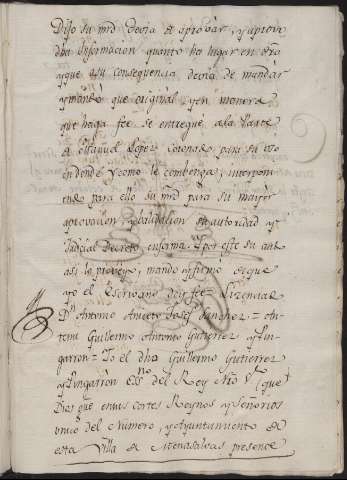 Dijo su mrd devia de aprovar, y aprovo
dha Informacion quanto ha lugar en dro
y que a su consequencia devia de mandar
y mandó que original y en manera
que haga fee se entregue a la Parte
de Manuel Lopez Coronado para su uso
en donde y como le combenga, interpon
iendo para ello su mrd para su mayor
aprovacion y validacion su autoridad y
Judicial Decreto en forma. I por este su aut
asi lo proveyo, mando y firmó de que
yo el Escrivano doy fee = Lizenciado
Dn Antonio Aniceto Josef Sanchez = An
temi Guillermo Antonio Gutierrez y Pin
garron = Io el dho Guillermo Gutierrez
y Pingarron Essno del Rey Nro Sr (que
Dios gue) en sus Cortes Reynos y Señorios
unico del Numero, y Ayuntamiento de
esta Villa de Menasalvas presente